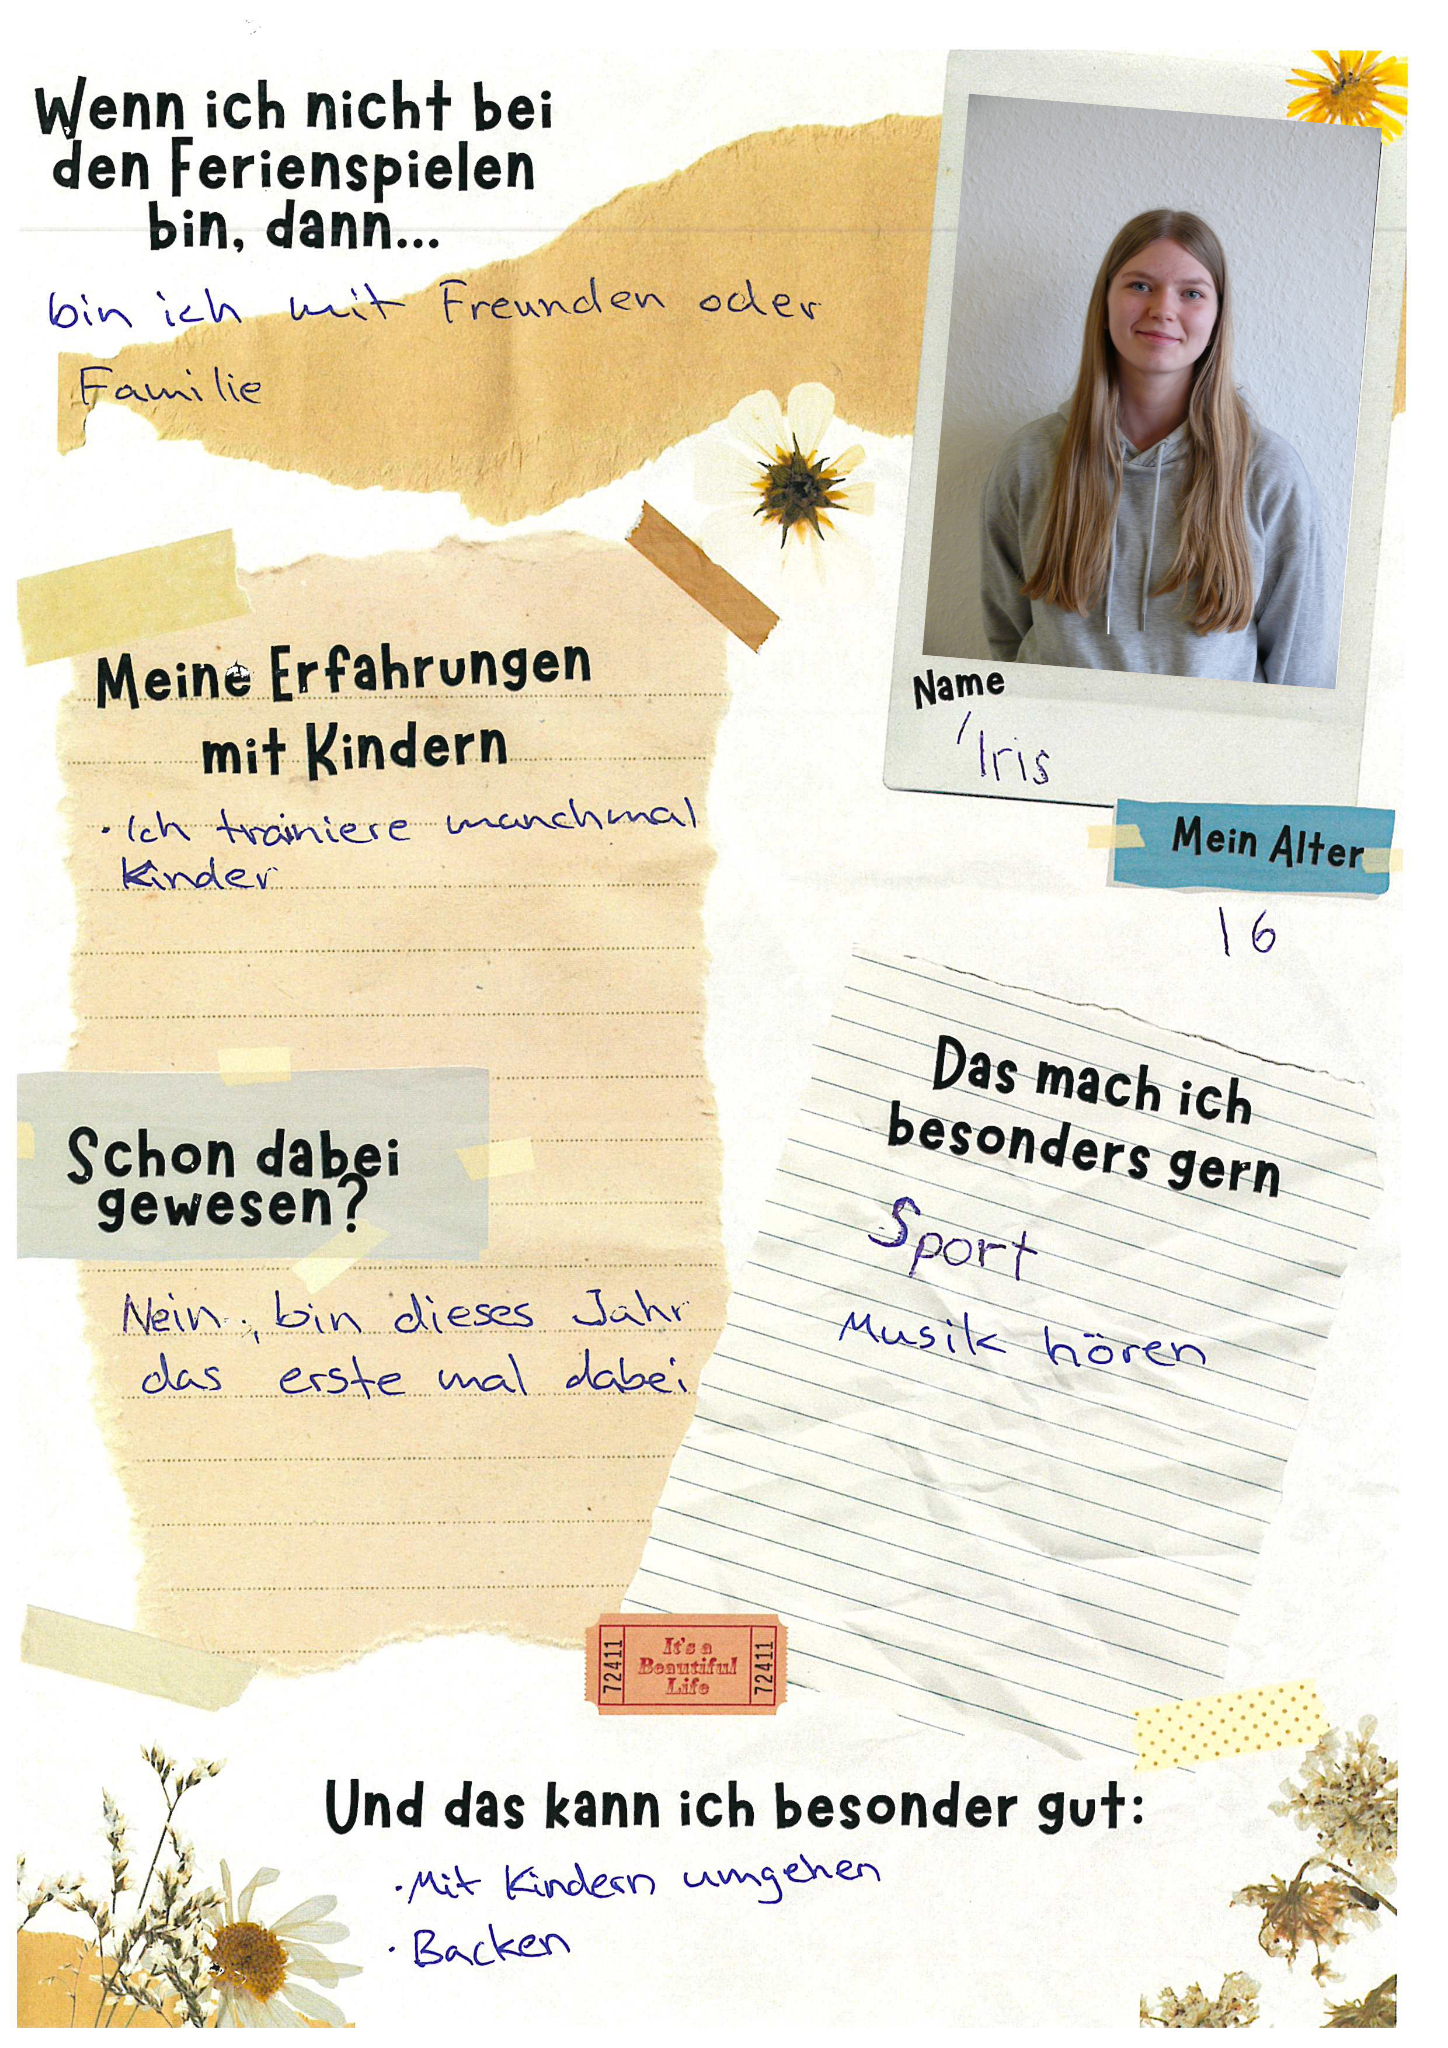 Wenn ich nicht bei
den Ferienspielen
bin, dann...
bin ich mit Freunden oder
Familie
Name
Iris
Mein Alter
16
Meine Erfahrungen
mit Kindern
· Ich trainiere manchmal
Kinder
Schon dabei
gewesen?
Nein, bin dieses Jahr
das erste mal dabei
Das mach ich
besonders gern
Sport
Musik hören
72411
It's a
Beautiful
Life
72411
Und das kann ich besonder gut:
· Mit Kindern umgehen
· Backen